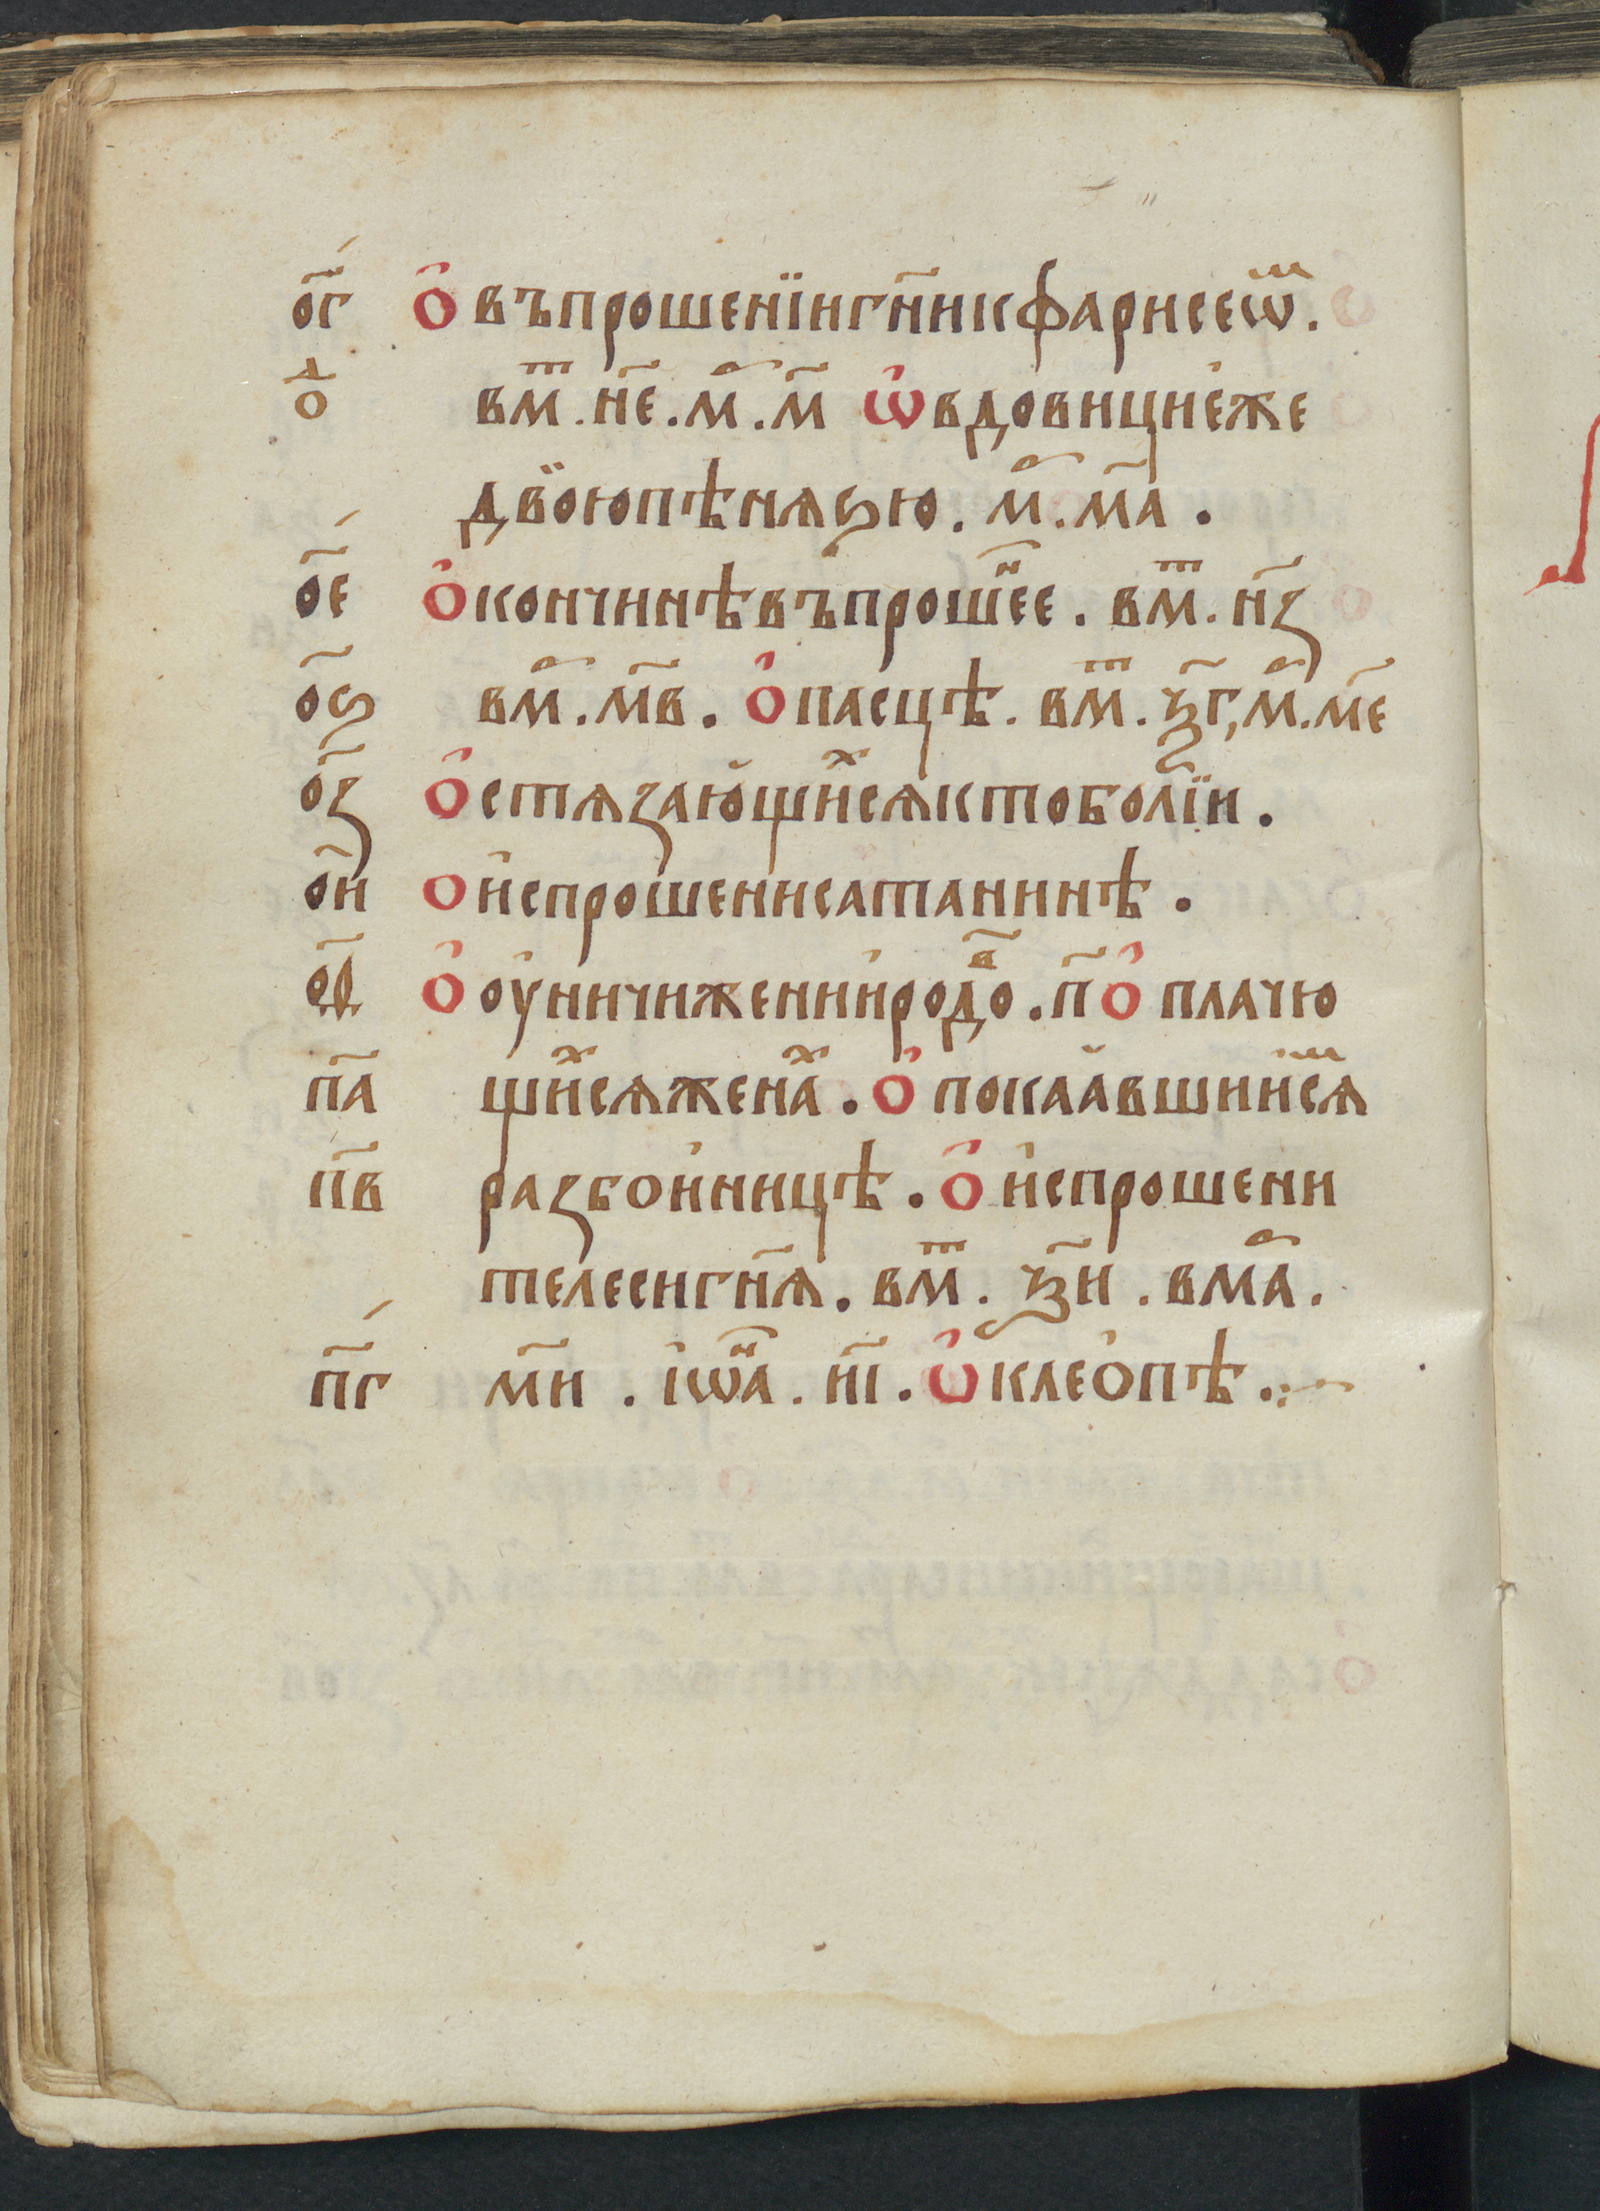 о҃г О въпрошенїи гн҃и к фарисеѡⷨ.
о҃д вⷨ҇. н҃е. м҃. м҃ Ѡ вдовици еже
двою пѣнязю. м҃. м҃а.
о҃е О кончинѣ въпрошⷩ҇ее. вⷨ҇. н҃з
о҃ѕ вм҃. м҃в. О пасцѣ. вⷨ҇. ѯ҃г, м҃. м҃е
о҃з О стязающиⷯся кто болїи.
о҃и О испрошени сатанинѣ.
о҃ѳ О оуничижени иродоⷡ҇. п҃ О плачю
п҃а щиⷯся женаⷯ. О покаавшиⷨися
п҃в разбоиницѣ. О испрошени
телеси гн҃я. вⷨ҇. ѯ҃и. в мⷬ҇а.
п҃г м҃и. іѡⷩ҇а. н҃і. Ѡ клеопѣ.